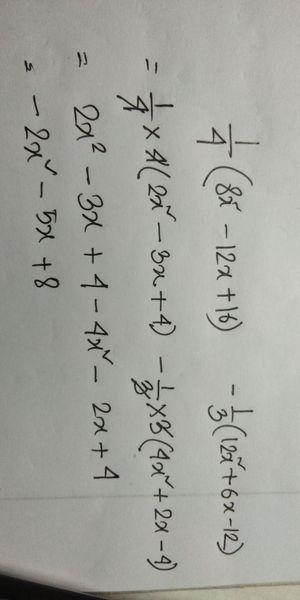 1/4 (8x² - 12x + 16) - 1/3 (12x² + 6x - 12)
= 1/4 × 4(2x² - 3x + 4) - 1/3 × 3(4x² + 2x - 4)
= 2x² - 3x + 4 - 4x² - 2x + 4
= - 2x² - 5x + 8